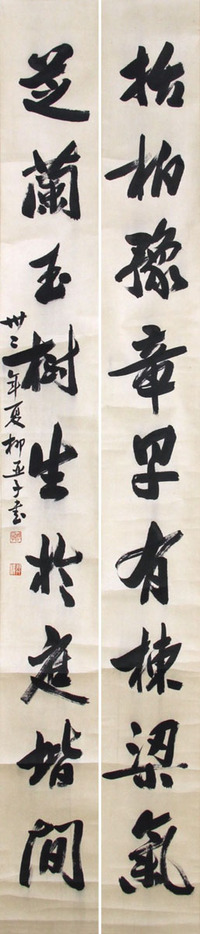 栝柏豫章早有棟梁氣
芝蘭玉樹生於庭堦間
卅三年夏柳亞子書